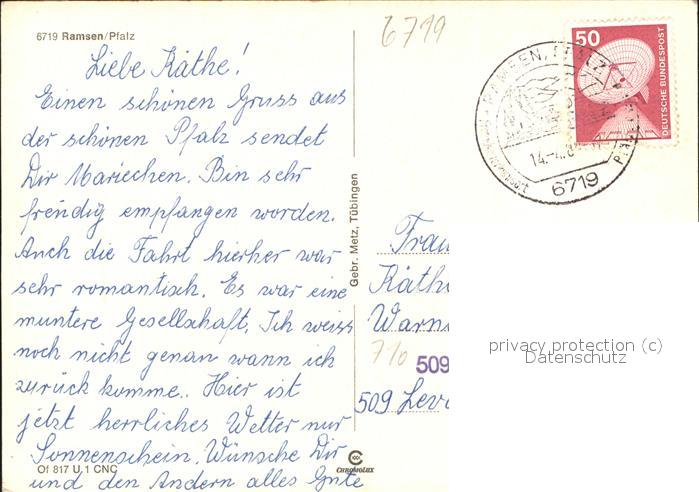 6719 Ramsen/Pfalz
6719
50
DEUTSCHE BUNDESPOST
RAMSEN, PFALZ
14.-4.8
6719
Liebe Käthe!
Einen schönen Gruss aus
der schönen Pfalz sendet
Dir Mariechen. Bin sehr
freudig empfangen worden.
Auch die Fahrt hierher war
sehr romantisch. Es war eine
muntere Gesellschaft. Ich weiss
noch nicht genau wann ich
zurück komme.. Hier ist
jetzt herrliches Wetter nur
Sonnenschein. Wünsche Dir
und den Andern alles Gute
Of 817 U 1 CNC
Gebr. Metz, Tübingen
CHROMOLUX
Frau
Käth
Warn
710
509
509 Lev
privacy protection (c)
Datenschutz